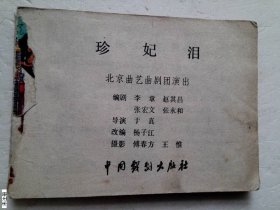 珍妃泪
北京曲艺曲剧团演出
编剧 李宸 赵其昌
张宏文 张永和
导演 于真
改编 杨子江
摄影 傅春方 王惟
中国戏剧出版社